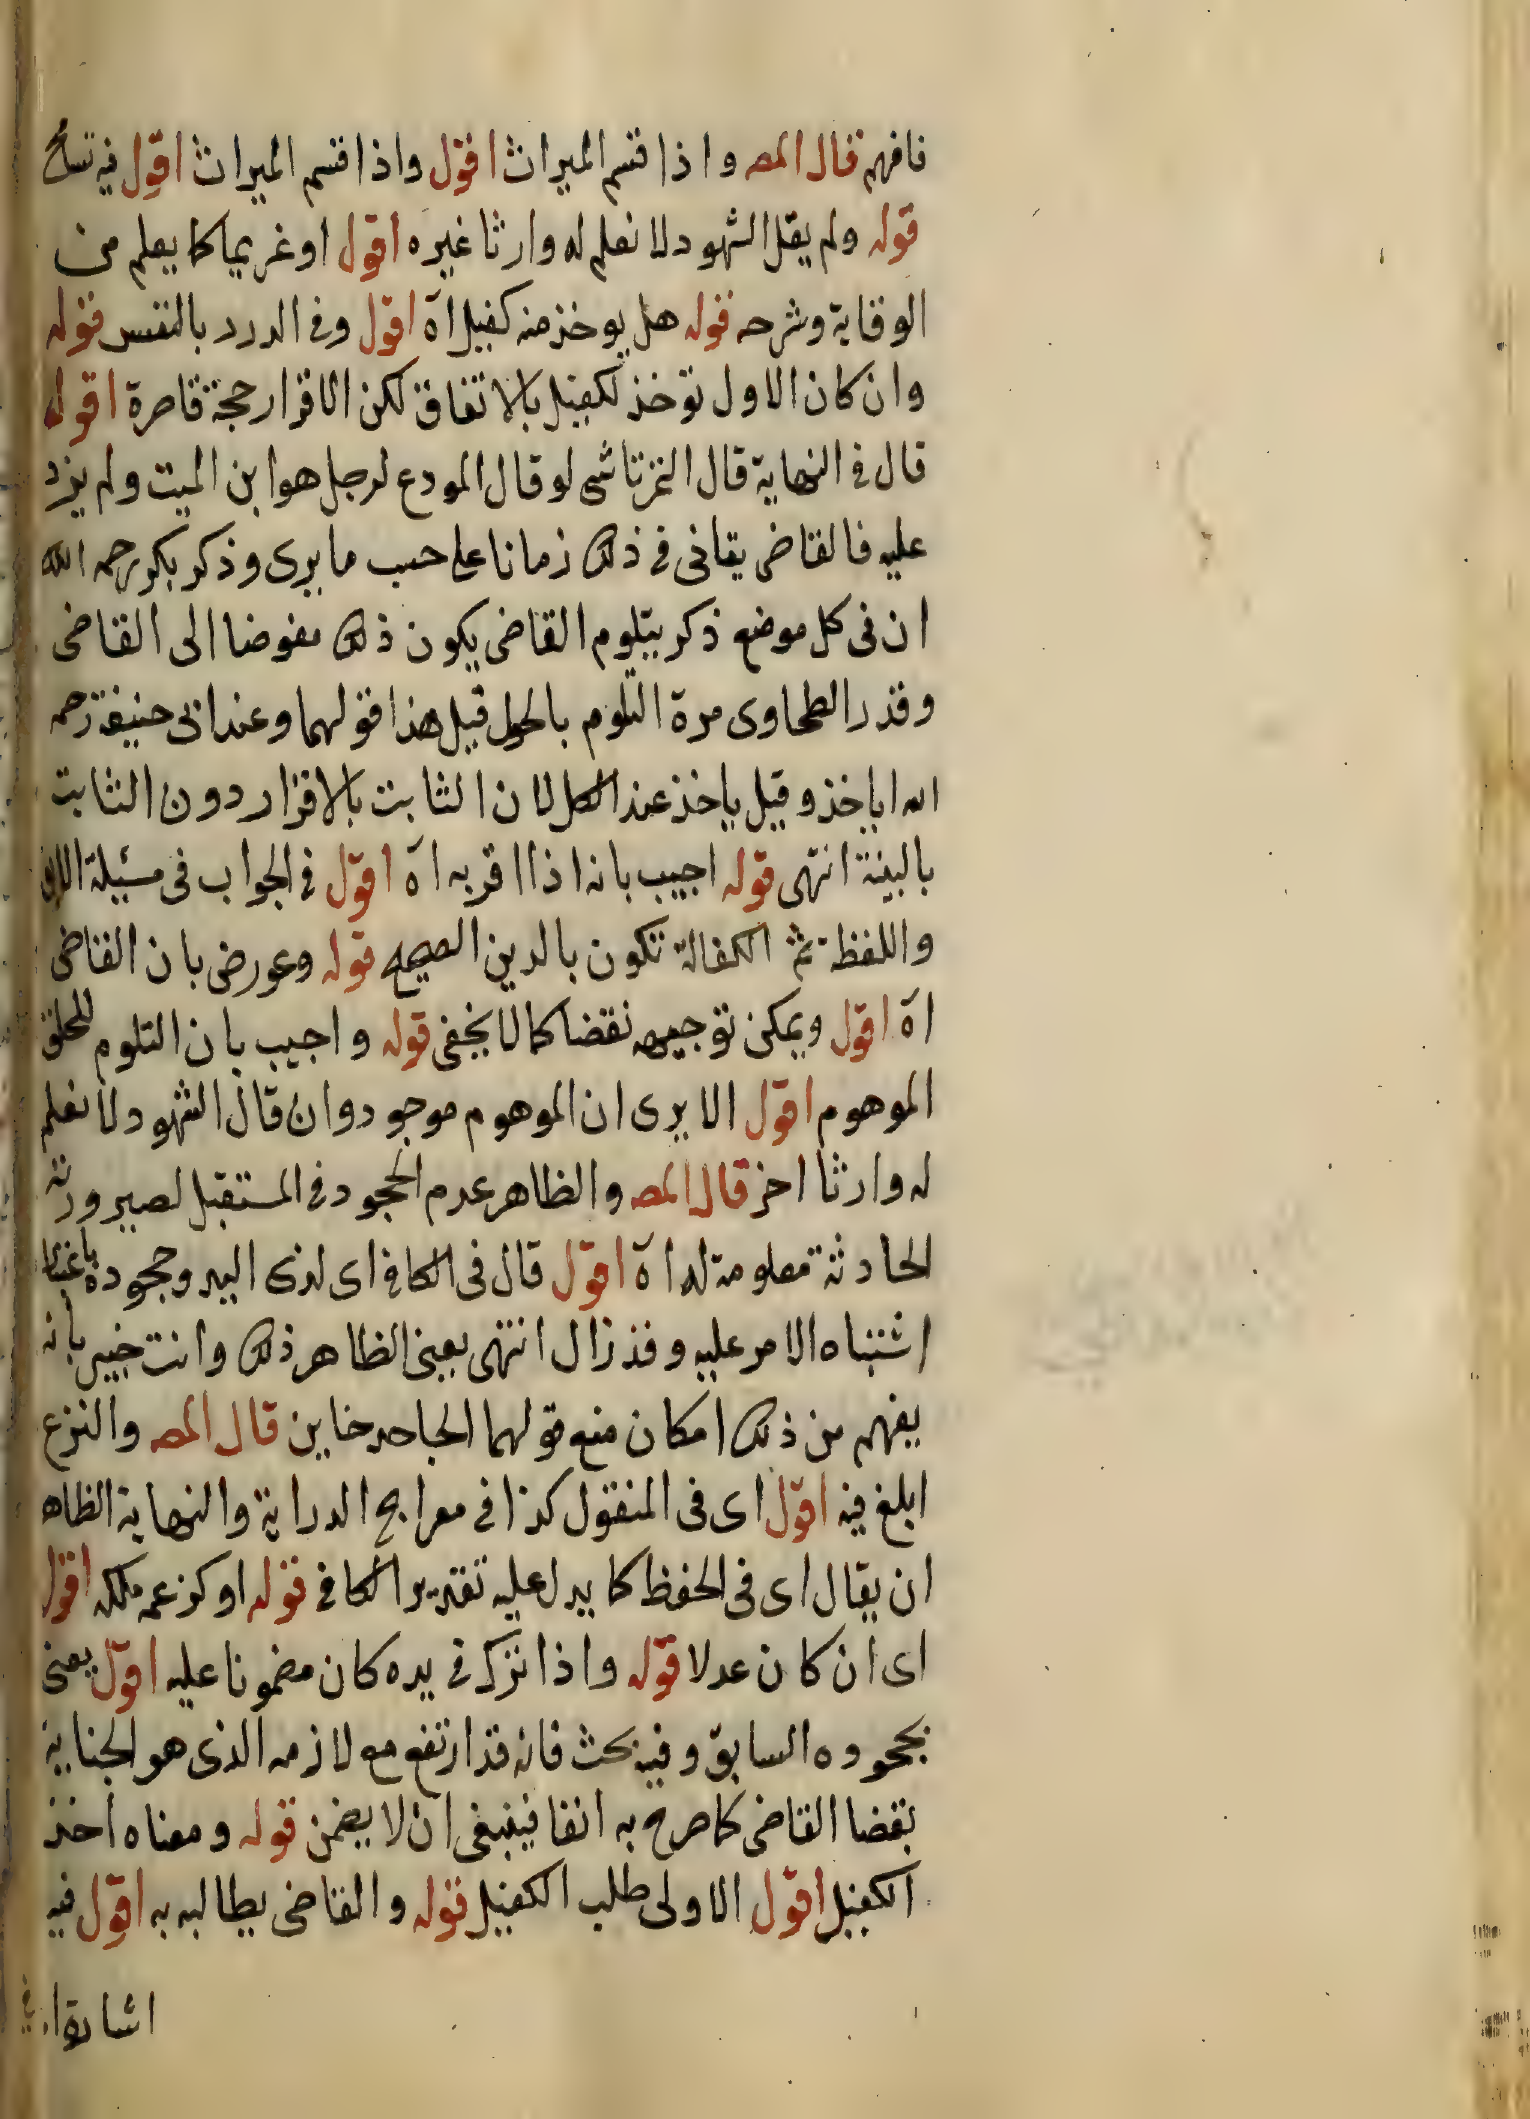 فافهم قال المص واذا قسم الميراث اقول واذا قسم الميراث اقول فيه تسامح
قوله ولم يقل الشهود لا نعلم له وارثا غيره اقول او غريما كما يعلم من
الوقاية وشرحه قوله هل يوخذ منه كفيل اه اقول وفى الدرر بالنفس قوله
وان كان الاول توخذ لكفيل بالاتفاق لكن الاقرار حجة قاصرة اقول
قال فى النهاية قال التمرتاشى لو قال المودع لرجل هو ابن الميت ولم يزد
عليه فالقاضى يقانى فى ذلك زمانا على حسب ما يرى وذكر بكر رحمه الله
ان فى كل موضع ذكر يتلوم القاضى يكون ذلك مفوضا الى القاضى
وقدر الطحاوى مرة التلوم بالحول قيل هذا قولهما وعند ابى حنيفة رحمه
الله اياخذ وقيل ياخذ عند الكل لان الثابت بالاقرار دون الثابت
بالبينة انتهى قوله اجيب بانه اذا اقر به اه اقول فى الجواب فى مسئلة
واللفظة ثم الكفالة تكون بالدين الصحيح قوله وعورض بان القاضى
اه اقول ويمكن توجيهه نقضا كما لا يخفى قوله واجيب بان التلوم للمحلق
الموهوم اقول الا يرى ان الموهوم موجود وان قال الشهود لا نعلم
له وارثا اخر قال المص والظاهر عدم الجحود فى المستقبل لصيرورته
الحادثة معلومة له اه اقول قال فى الكافى اى لذى اليد وجحوده باعتبار
اشتباه الامر عليه وقد زال انتهى يعنى الظاهر ذلك وانت خبير بانه
يفهم من ذلك امكان منع قولهما الجاحد خاين قال المص والنزع
ابلغ فيه اقول اى فى المنقول كذا فى معراج الدراية والنهاية الظاه
ان يقال اى فى الحفظ كما يدل عليه تقدير الكافى قوله او كزعمه ملكه اقول
اى ان كان عدلا قوله واذا ترك فى يده كان مضمونا عليه اقول يعنى
بجحوده السابق وفيه بحث فانه قد ارتفع مع لازمه الذى هو الجناية
بقضا القاضى كما صرح به انفا فينبغى ان لا يضمن قوله ومعناه اخذ
الكفيل اقول الاولى طلب الكفيل قوله والقاضى يطالبه به اقول فيه
اشارة